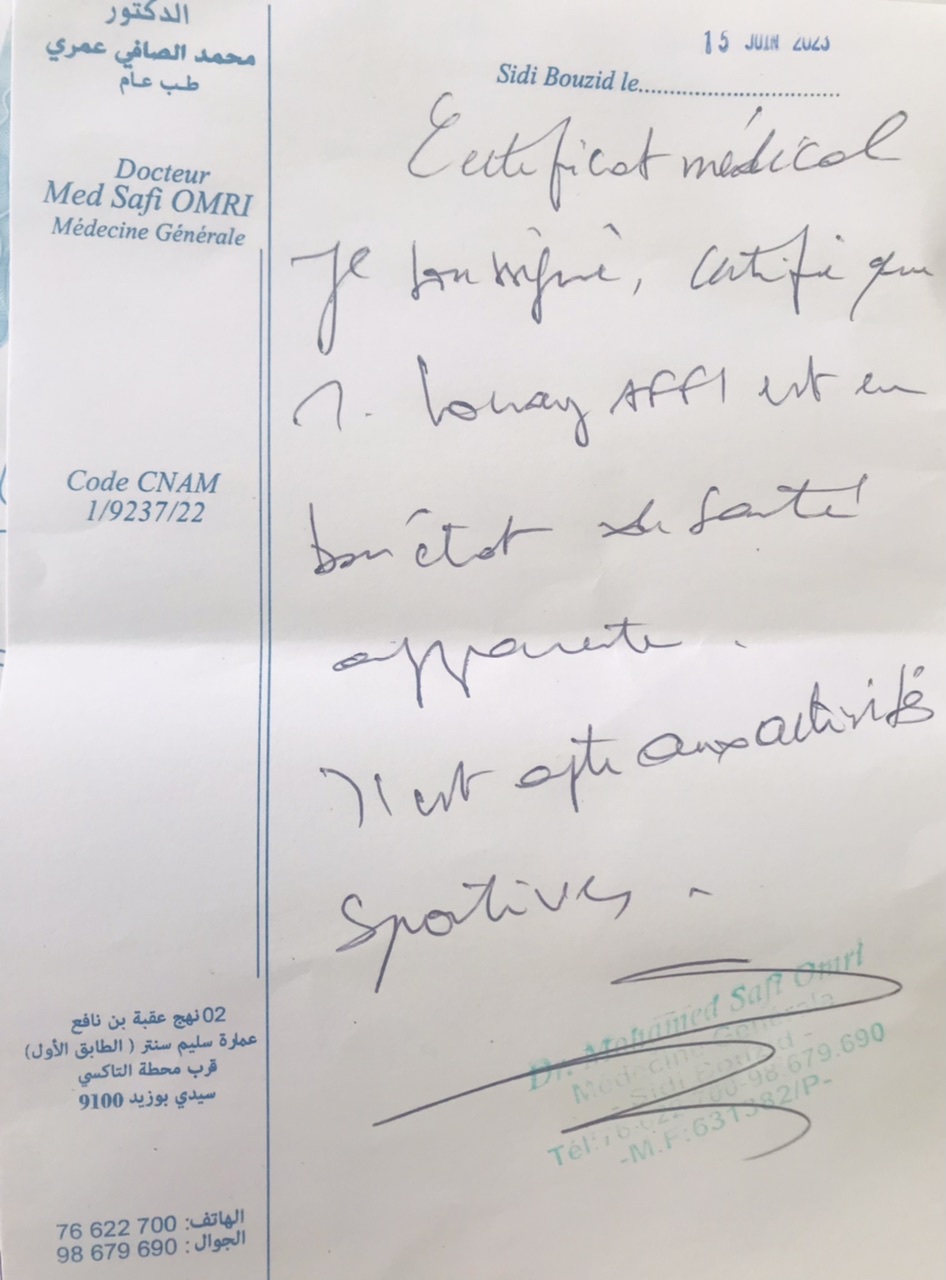 الدكتور
محمد الصافي عمري
طب عام
Docteur
Med Safi OMRI
Médecine Générale
Code CNAM
1/9237/22
02 نهج عقبة بن نافع
عمارة سليم سنتر ( الطابق الأول)
قرب محطة التاكسي
سيدي بوزيد 9100
الهاتف: 700 622 76
الجوال: 690 679 98
15 JUIN 2023
Sidi Bouzid le
Certificat médical
Je soussigné, certifie que
Louay AFFI est en
bon état de santé
apparente.
Il est apte aux activités
Sportives.
Dr. Mohamed Safi Omri
Médecine Générale
- Sidi Bouzid -
Tél:76.622.700-98.679.690
-M.F:631382/P-